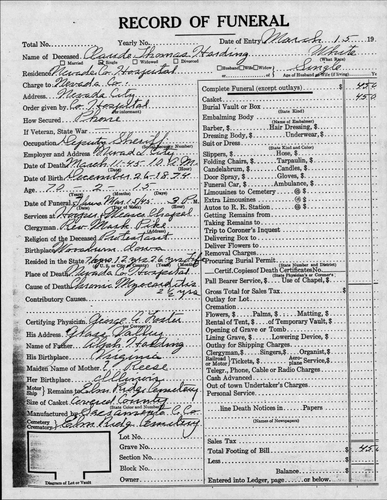 RECORD OF FUNERAL
Total No. Yearly No. Date of Entry March 15 19
Name of Deceased Claude Thomas Harding White
Married Single Widowed Divorced (What Race)
Residence Nevada Co. Hospital Husband Wife Widow Single
Charge to Nevada Co. Age of Husband or Wife (if living) Yrs.
Address Nevada City
Order given by Co. Hospital
How Secured Phone
If Veteran, State War
Occupation Deputy Sheriff
Employer and Address Nevada City
Date of Death March 11-45 10 A.M.
Date of Birth December 26-1874
Age 70 2 15
Date of Funeral Thurs Mar 15/45 2 P.M.
Services at Hooper Weaver Chapel
Clergyman Rev. Mark Pike
Religion of the Deceased Protestant
Birthplace Woodburn Iowa
Resided in the State 12 yrs 26 yrs
Place of Death Nevada Co Hospital
Cause of Death Chronic Myocarditis
2 6 yrs
Contributory Causes
Certifying Physician George A. Foster
His Address Grass Valley
Name of Father Harding
His Birthplace Virginia
Maiden Name of Mother Reese
Her Birthplace Illinois
Motor Ship Remains to Elm Ridge Cemetery
Size of Casket Covered County
(State Color and Number)
Manufactured by Sacramento C. Co.
Cemetery Crematory Elm Ridge Cemetery
Lot No.
Grave No.
Section No.
Block No.
Owner
Diagram of Lot or Vault
Complete Funeral (except outlays) $ 45 0
Casket 45 0
Burial Vault or Box
(State Kind)
Embalming Body
(Name of Embalmer)
Barber, Hair Dressing,
Dressing Body, Underwear,
Suit or Dress
(State Kind and Color)
Slippers, Hose,
Folding Chairs, Tarpaulin,
Candelabrum, Candles,
Door Spray, Gloves,
Funeral Car, Ambulance
Limousines to Cemetery @
Extra Limousines @
Autos to R. R. Station @
Getting Remains from
Taking Remains to
Trip to Coroner's Inquest
Delivering Box to
Deliver Flowers to
Removal Charges
Procuring Burial Permit
(State Number and District)
Certif. Copies of Death Certificates No.
(State Physician's or Coroner's)
Pall Bearer Service, Use of Chapel,
Gross Total for Sales Tax
Outlay for Lot
Cremation
Flowers, Palms, Matting,
Rental of Tent, of Temporary Vault,
Opening of Grave or Tomb
Lining Grave, Lowering Device,
Outlay for Shipping Charges
Clergyman, Singers, Organist,
Railroad or Motor Tickets, Aero Plane Service,
Teleg., Phone, Cable or Radio Charges
Cash Advanced
Out of town Undertaker's Charges
Personal Service
line Death Notices in Papers
(Names of Newspapers)
Sales Tax
Total Footing of Bill $ 45 0
Less
Balance
Entered into Ledger, page or below.